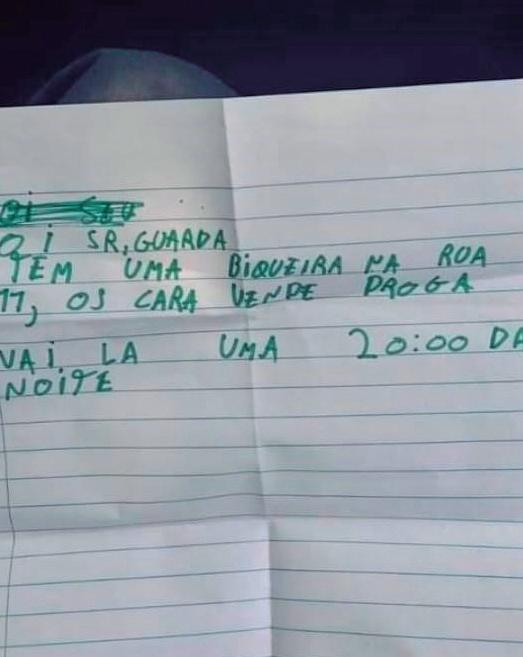 Oi SEU
Oi SR, GUARDA
TEM UMA BiQUEIRA NA ROA
17, OS CARA VENDE DROGA
VAI LA UMA 20:00 DA
NOITE